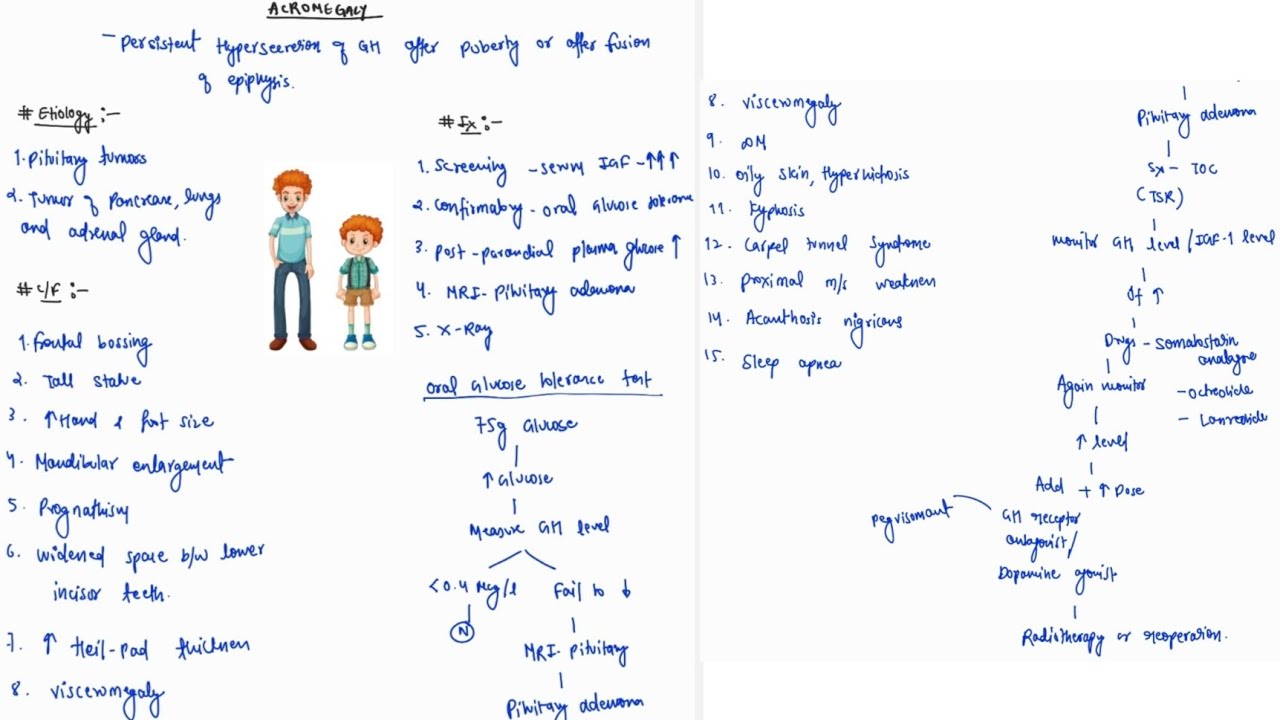 ACROMEGALY
- Persistent Hypersecretion of GH after puberty or after fusion
of epiphysis.
# Etiology :-
1. Pituitary tumors
2. Tumor of Pancreas, lungs
and adrenal gland.
# C/F :-
1. Frontal bossing
2. Tall stature
3. ↑ Hand & foot size
4. Mandibular enlargement
5. Prognathism
6. Widened space b/w lower
incisor teeth.
7. ↑ Heil-pad thickness
8. Visceromegaly
# Ix :-
1. Screening - serum IGF - ↑↑↑
2. Confirmatory - oral glucose tolerance
3. Post-parandial plasma glucose ↑
4. MRI - Pituitary adenoma
5. X-Ray
Oral Glucose tolerance test
75g Glucose
↑ Glucose
Measure GH level
<0.4 mcg/l Fail to ↓
N
MRI - Pituitary
Pituitary adenoma
8. Visceromegaly
9. DM
10. oily skin, Hyperhidrosis
11. Kyphosis
12. Carpel tunnel syndrome
13. Proximal m/s weakness
14. Acanthosis nigricans
15. Sleep apnea
Pituitary adenoma
Sx - TOC
(TSR)
monitor GH level / IGF-1 level
If ↑
Drugs - Somatostatin
analogue
- octreotide
- Lanreotide
Again monitor
↑ level
Add + ↑ Dose
pegvisomant
GH receptor
antagonist/
Dopamine agonist
Radiotherapy or reoperation.